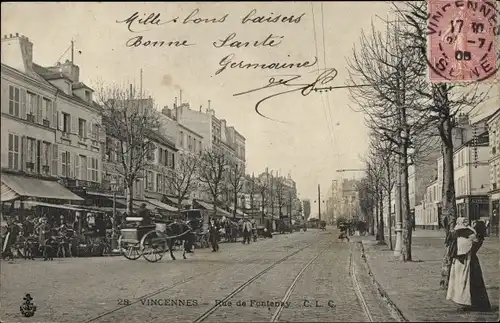 Mille & bons baisers
Bonne Santé
Germaine
VINCENNES
17 30
05
SEINE
28. VINCENNES - Rue de Fontenay C. L. C.